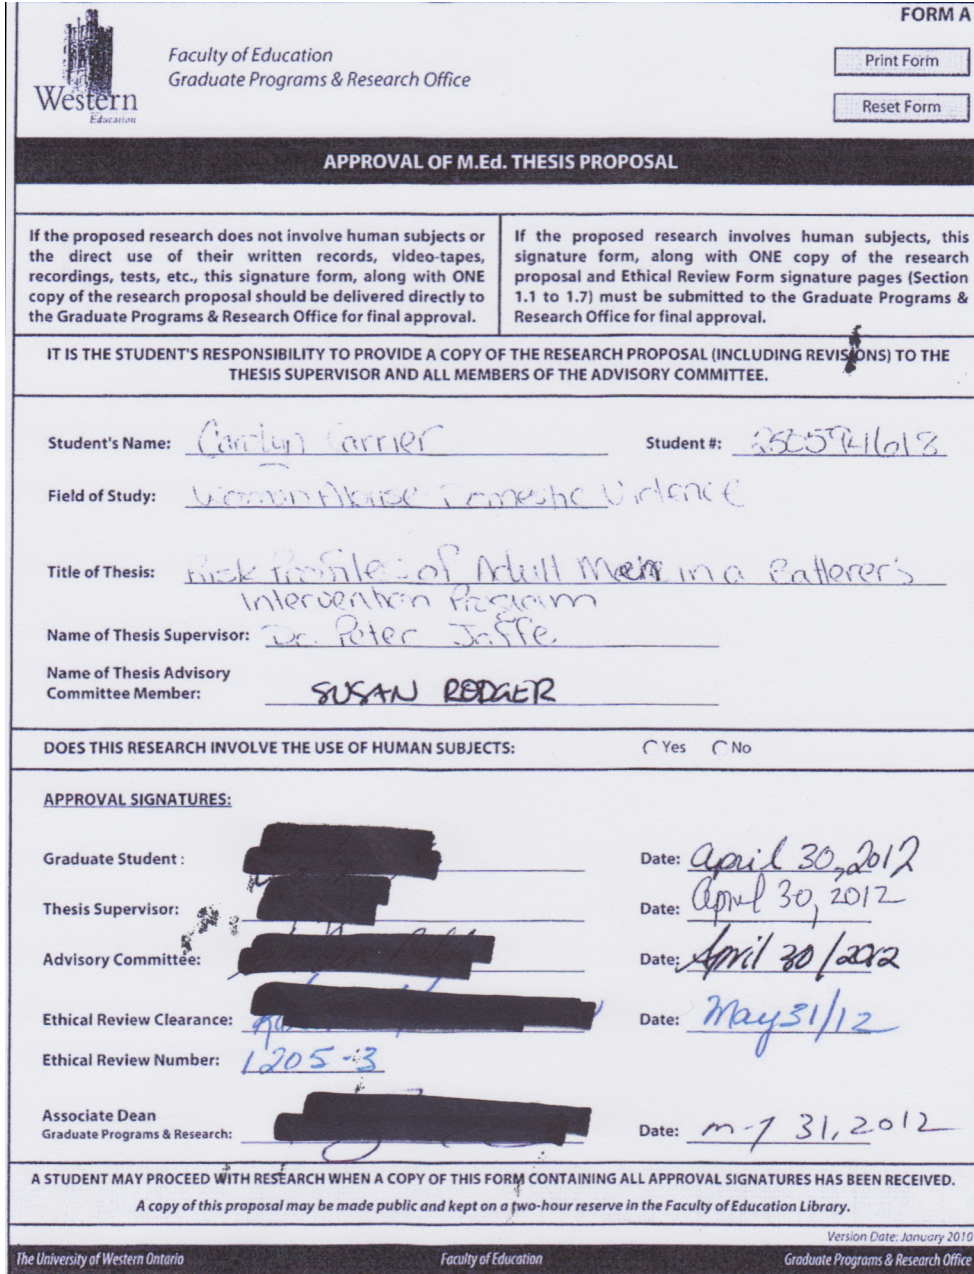 FORM A
Western
Education
Faculty of Education
Graduate Programs & Research Office
Print Form
Reset Form
APPROVAL OF M.Ed. THESIS PROPOSAL
If the proposed research does not involve human subjects or
the direct use of their written records, video-tapes,
recordings, tests, etc., this signature form, along with ONE
copy of the research proposal should be delivered directly to
the Graduate Programs & Research Office for final approval.
If the proposed research involves human subjects, this
signature form, along with ONE copy of the research
proposal and Ethical Review Form signature pages (Section
1.1 to 1.7) must be submitted to the Graduate Programs &
Research Office for final approval.
IT IS THE STUDENT'S RESPONSIBILITY TO PROVIDE A COPY OF THE RESEARCH PROPOSAL (INCLUDING REVISIONS) TO THE
THESIS SUPERVISOR AND ALL MEMBERS OF THE ADVISORY COMMITTEE.
Student's Name: Carolyn Carrier Student #:
Field of Study: Woman Abuse Domestic Violence
Title of Thesis: Risk Profiles of Adult Men in a Batterer's
Intervention Program
Name of Thesis Supervisor: Dr. Peter Jaffe
Name of Thesis Advisory
Committee Member: SUSAN RODGER
DOES THIS RESEARCH INVOLVE THE USE OF HUMAN SUBJECTS: Yes No
APPROVAL SIGNATURES:
Graduate Student : Date: April 30, 2012
Thesis Supervisor: Date: April 30, 2012
Advisory Committee: Date: April 30/2012
Ethical Review Clearance: Date: May 31/12
Ethical Review Number: 1205-3
Associate Dean
Graduate Programs & Research: Date: 31, 2012
A STUDENT MAY PROCEED WITH RESEARCH WHEN A COPY OF THIS FORM CONTAINING ALL APPROVAL SIGNATURES HAS BEEN RECEIVED.
A copy of this proposal may be made public and kept on a two-hour reserve in the Faculty of Education Library.
Version Date: January 2010
The University of Western Ontario Faculty of Education Graduate Programs & Research Office